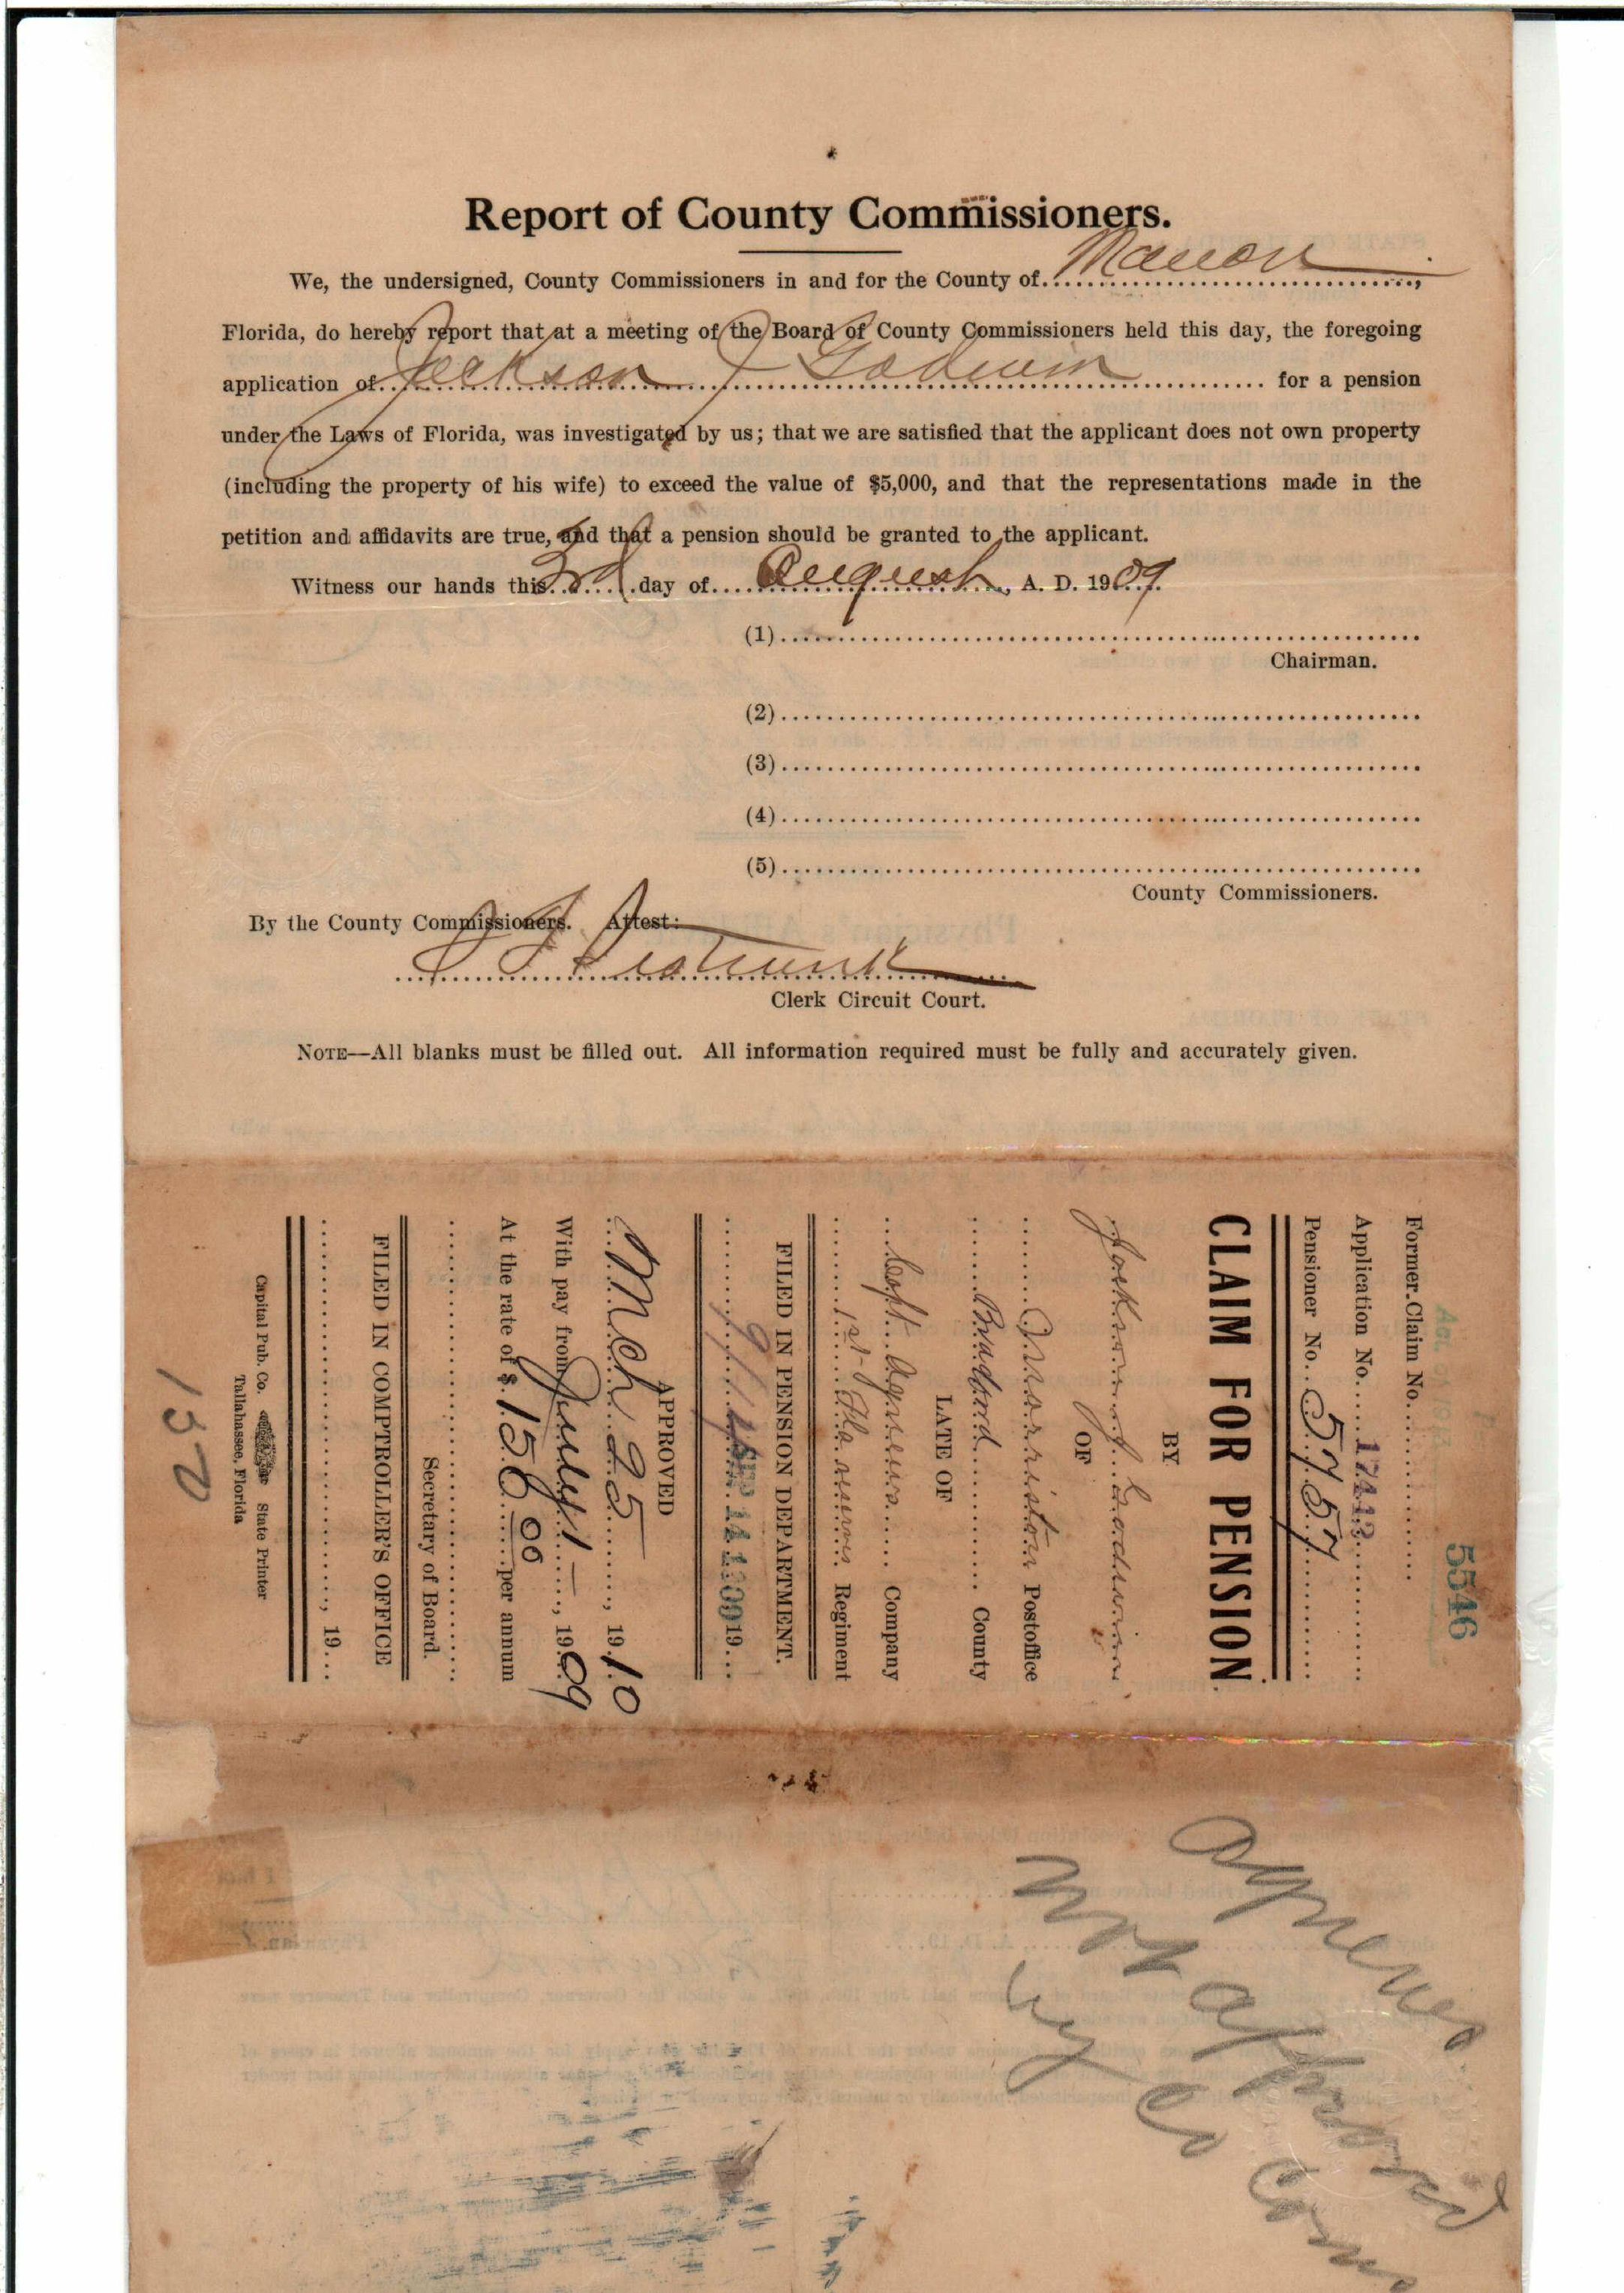 Report of County Commissioners.
We, the undersigned, County Commissioners in and for the County of Marion,
Florida, do hereby report that at a meeting of the Board of County Commissioners held this day, the foregoing
application of Jackson J Godwin for a pension
under the Laws of Florida, was investigated by us; that we are satisfied that the applicant does not own property
(including the property of his wife) to exceed the value of $5,000, and that the representations made in the
petition and affidavits are true, and that a pension should be granted to the applicant.
Witness our hands this 3rd day of August, A. D. 1909.
(1)
Chairman.
(2)
(3)
(4)
(5)
County Commissioners.
By the County Commissioners. Attest:
Clerk Circuit Court.
NOTE—All blanks must be filled out. All information required must be fully and accurately given.
5546
Former Claim No.
Application No. 17443
Pensioner No. 5757
CLAIM FOR PENSION
BY
Jackson J. Godwin
OF
Morriston Postoffice
Bradford County
LATE OF
Capt. Agnews Company
1st Fla Regiment
FILED IN PENSION DEPARTMENT.
SEP 14 1909 19
APPROVED
Mch 25, 1910
With pay from July 1, 1909
At the rate of $ 150 00 per annum
Secretary of Board.
FILED IN COMPTROLLER'S OFFICE
, 19
Capital Pub. Co. State Printer
Tallahassee, Florida
1520
Agnews
Not approved
by Co Coms